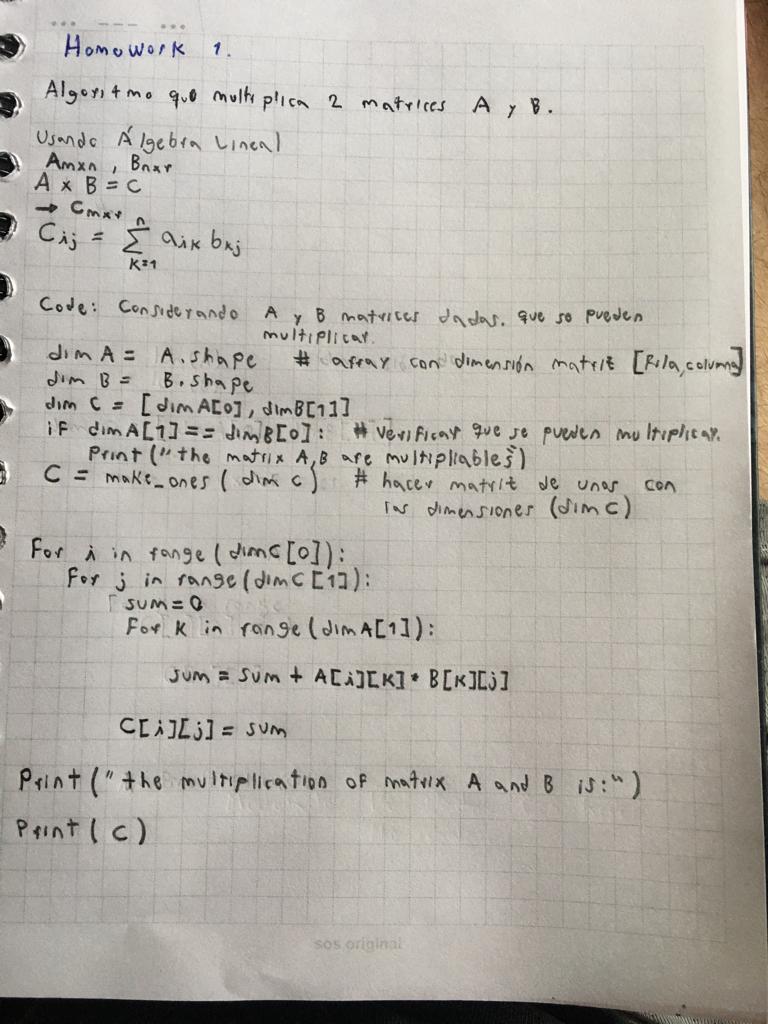 Homework 1.
Algoritmo que multiplica 2 matrices A y B.
Usando Álgebra Lineal
Amxn , Bnxr
A x B = C
→ Cmxr
Cij = n∑k=1 aik bkj
Code: Considerando A y B matrices dadas. que se pueden
multiplicar.
dim A = A.shape # array con dimensión matriz [Fila,columna]
dim B = B.shape
dim C = [dimA[0], dimB[1]]
if dimA[1] == dimB[0]: # Verificar que se pueden multiplicar.
Print("the matrix A,B are multipliables")
C = make_ones (dim C) # hacer matriz de unos con
las dimensiones (dim C)
For i in range (dimC[0]):
For j in range (dimC[1]):
sum = 0
For k in range (dimA[1]):
sum = sum + A[i][k] * B[k][j]
C[i][j] = sum
Print("the multiplication of matrix A and B is:")
Print( C )
sos original